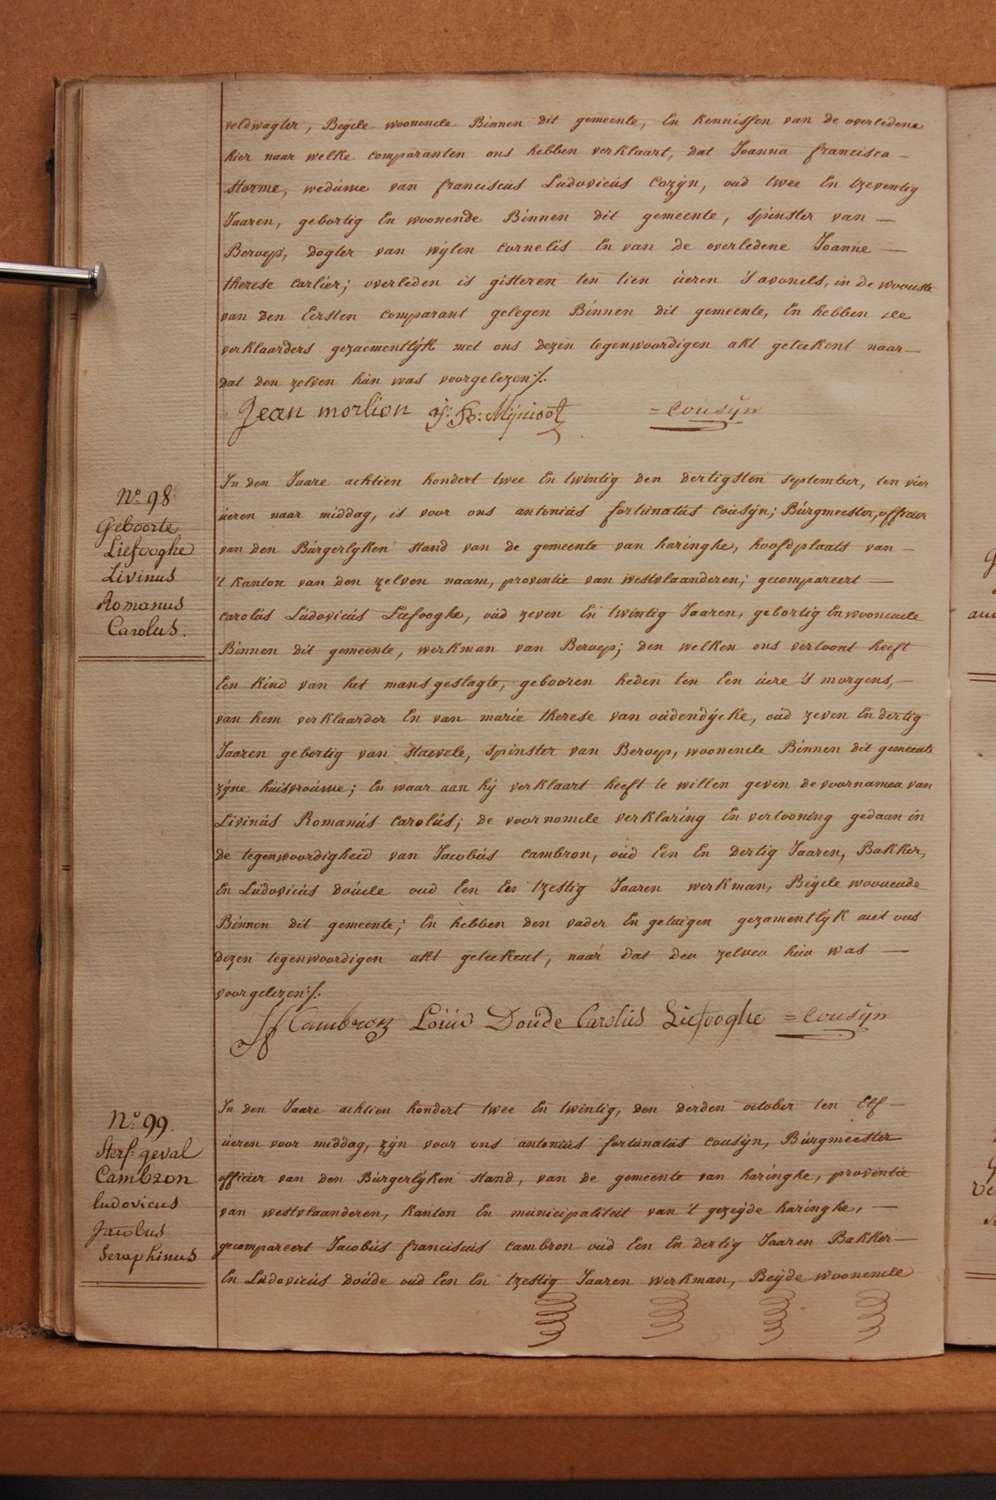 veldwagter, Beyde woonende Binnen dit gemeente, En kennissen van de overledene
hier naar welke comparanten ons hebben verklaart, dat Joanna francisca –
Storme, weduwe van franciscus Ludovicús Cozÿn, oud twee En tzeventig
Jaaren, gebortig En woonende Binnen dit gemeente, spinster van —
Beroep, dogter van wÿlen cornelis En van de overledene Joanne —
therese carlier; overleden is gisteren ten tien úeren 's avonds, in de woonste
van den Eersten comparant gelegen Binnen dit gemeente, En hebben de
verklaarders gezaementlÿk met ons dezen tegenwoordigen akt geteekent naar—
dat den zelven hún was voorgelezen ⁒.
Jean morlion = Cousÿn
N.º 98
Geboorte
Liefooghe
Livinus
Romanus
Carolus.
In den Jaare achtien hondert twee En twintig den dertigsten september, ten vier
úeren naar middag, is voor ons antoniús fortunatús cousÿn; Búrgmeester, officier
van den Búrgerlyken stand van de gemeente van haringhe, hoofdplaats van —
't kanton van den zelven naam, provintie van westvlaanderen; gecompareert —
carolus Lúdovicús Liefooghe, oúd zeven En twintig Jaaren, gebortig En woonende
Binnen dit gemeente, werkman van Beroep; den welken ons vertoont heeft
Een kind van het mans geslagte, gebooren heden ten Een úere 's morgens, —
van hem verklaarder En van marie therese van oúdendÿcke, oúd zeven En dertig
Jaaren gebortig van Staevele, spinster van Beroep, woonende Binnen dit gemeente
zÿne húisvroúwe; En waar aan hÿ verklaart heeft te willen geven de voornamen van
Livinús Romanús carolús; de voornomde verklaring En vertooning gedaan in
de tegenwoordigheid van Jacobús cambron, oúd Een En dertig Jaaren, Bakker,
En Lúdovicús doúde oud Een En tzestig Jaaren werkman, Beÿde woonende
Binnen dit gemeente; En hebben den vader En getuigen gezamentlÿk met ons
dezen tegenwoordigen akt geteekent, naar dat den zelven hún was —
voorgelezen ⁒.
Cambron Loúis Doúde Carolús Liefooghe = Cousÿn
N.º 99.
Sterf. geval
Cambron
ludovicus
Jacobus
Seraphinus
In den Jaare achtien hondert twee En twintig, den derden october ten Elf —
úeren voor middag, zÿn voor ons antoniús fortunatús cousÿn, Búrgmeester
officier van den Búrgerlÿken stand, van de gemeente van haringhe, provintie
van westvlaanderen, kanton En municipaliteit van 't gezeÿde haringhe, —
gecompareert Jacobús franciscús cambron oúd Een En dertig Jaaren Bakker—
En Lúdovicús doúde oud Een En tzestig Jaaren werkman, Beÿde woonende